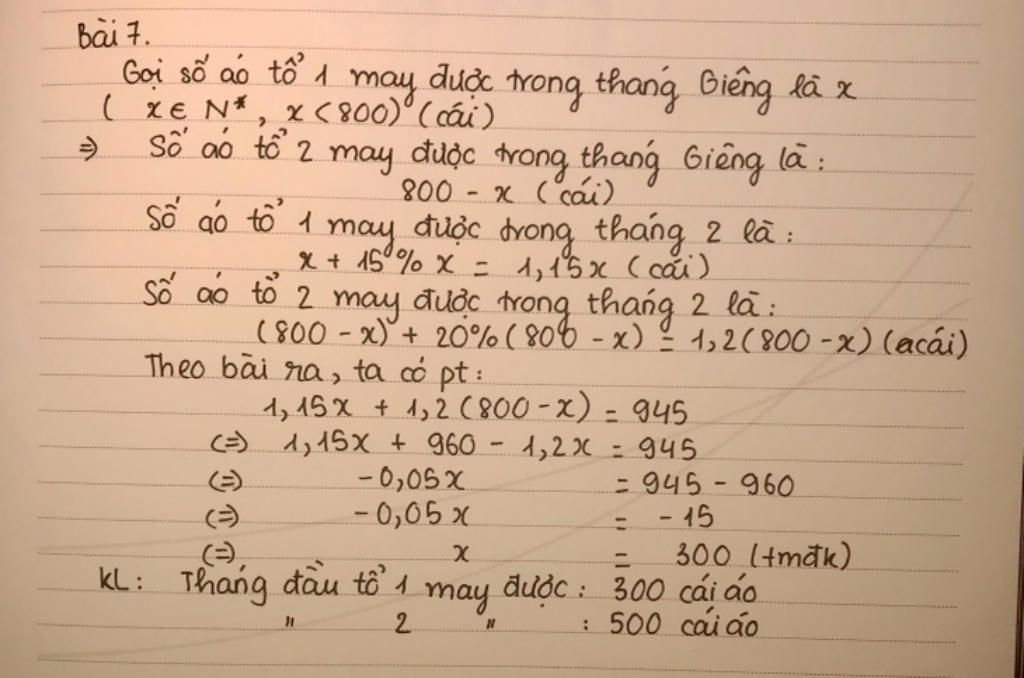 Bài 7.
Gọi số áo tổ 1 may được trong tháng Giêng là x
( x ∈ N*, x < 800) (cái)
⇒ Số áo tổ 2 may được trong tháng Giêng là :
800 - x (cái)
Số áo tổ 1 may được trong tháng 2 là :
x + 15% x = 1,15x (cái)
Số áo tổ 2 may được trong tháng 2 là :
(800 - x) + 20% (800 - x) = 1,2 (800 - x) (cái)
Theo bài ra, ta có pt :
1,15x + 1,2 (800 - x) = 945
(=) 1,15x + 960 - 1,2x = 945
(=) -0,05x = 945 - 960
(=) -0,05x = -15
(=) x = 300 (tmđk)
KL : Tháng đầu tổ 1 may được : 300 cái áo
" 2 " : 500 cái áo